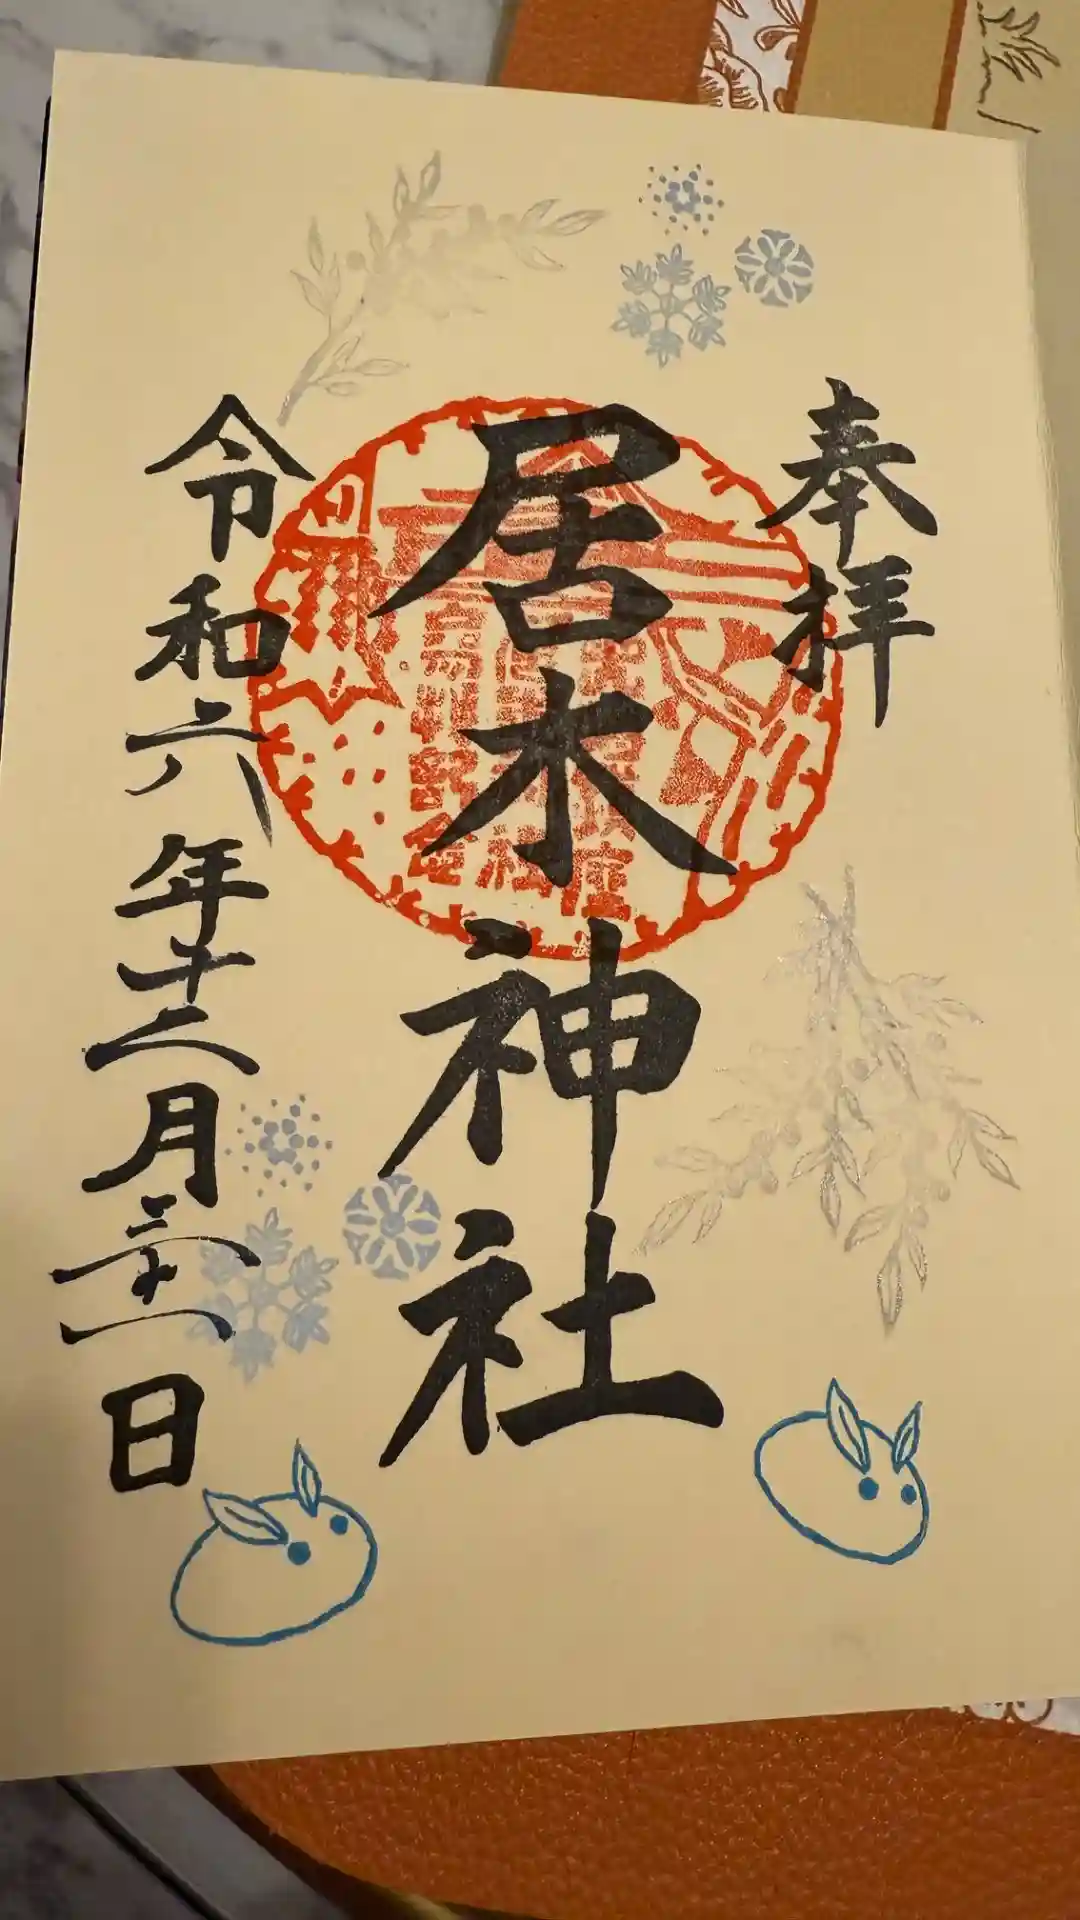 奉拝
居木神社
令和六年十二月三十一日